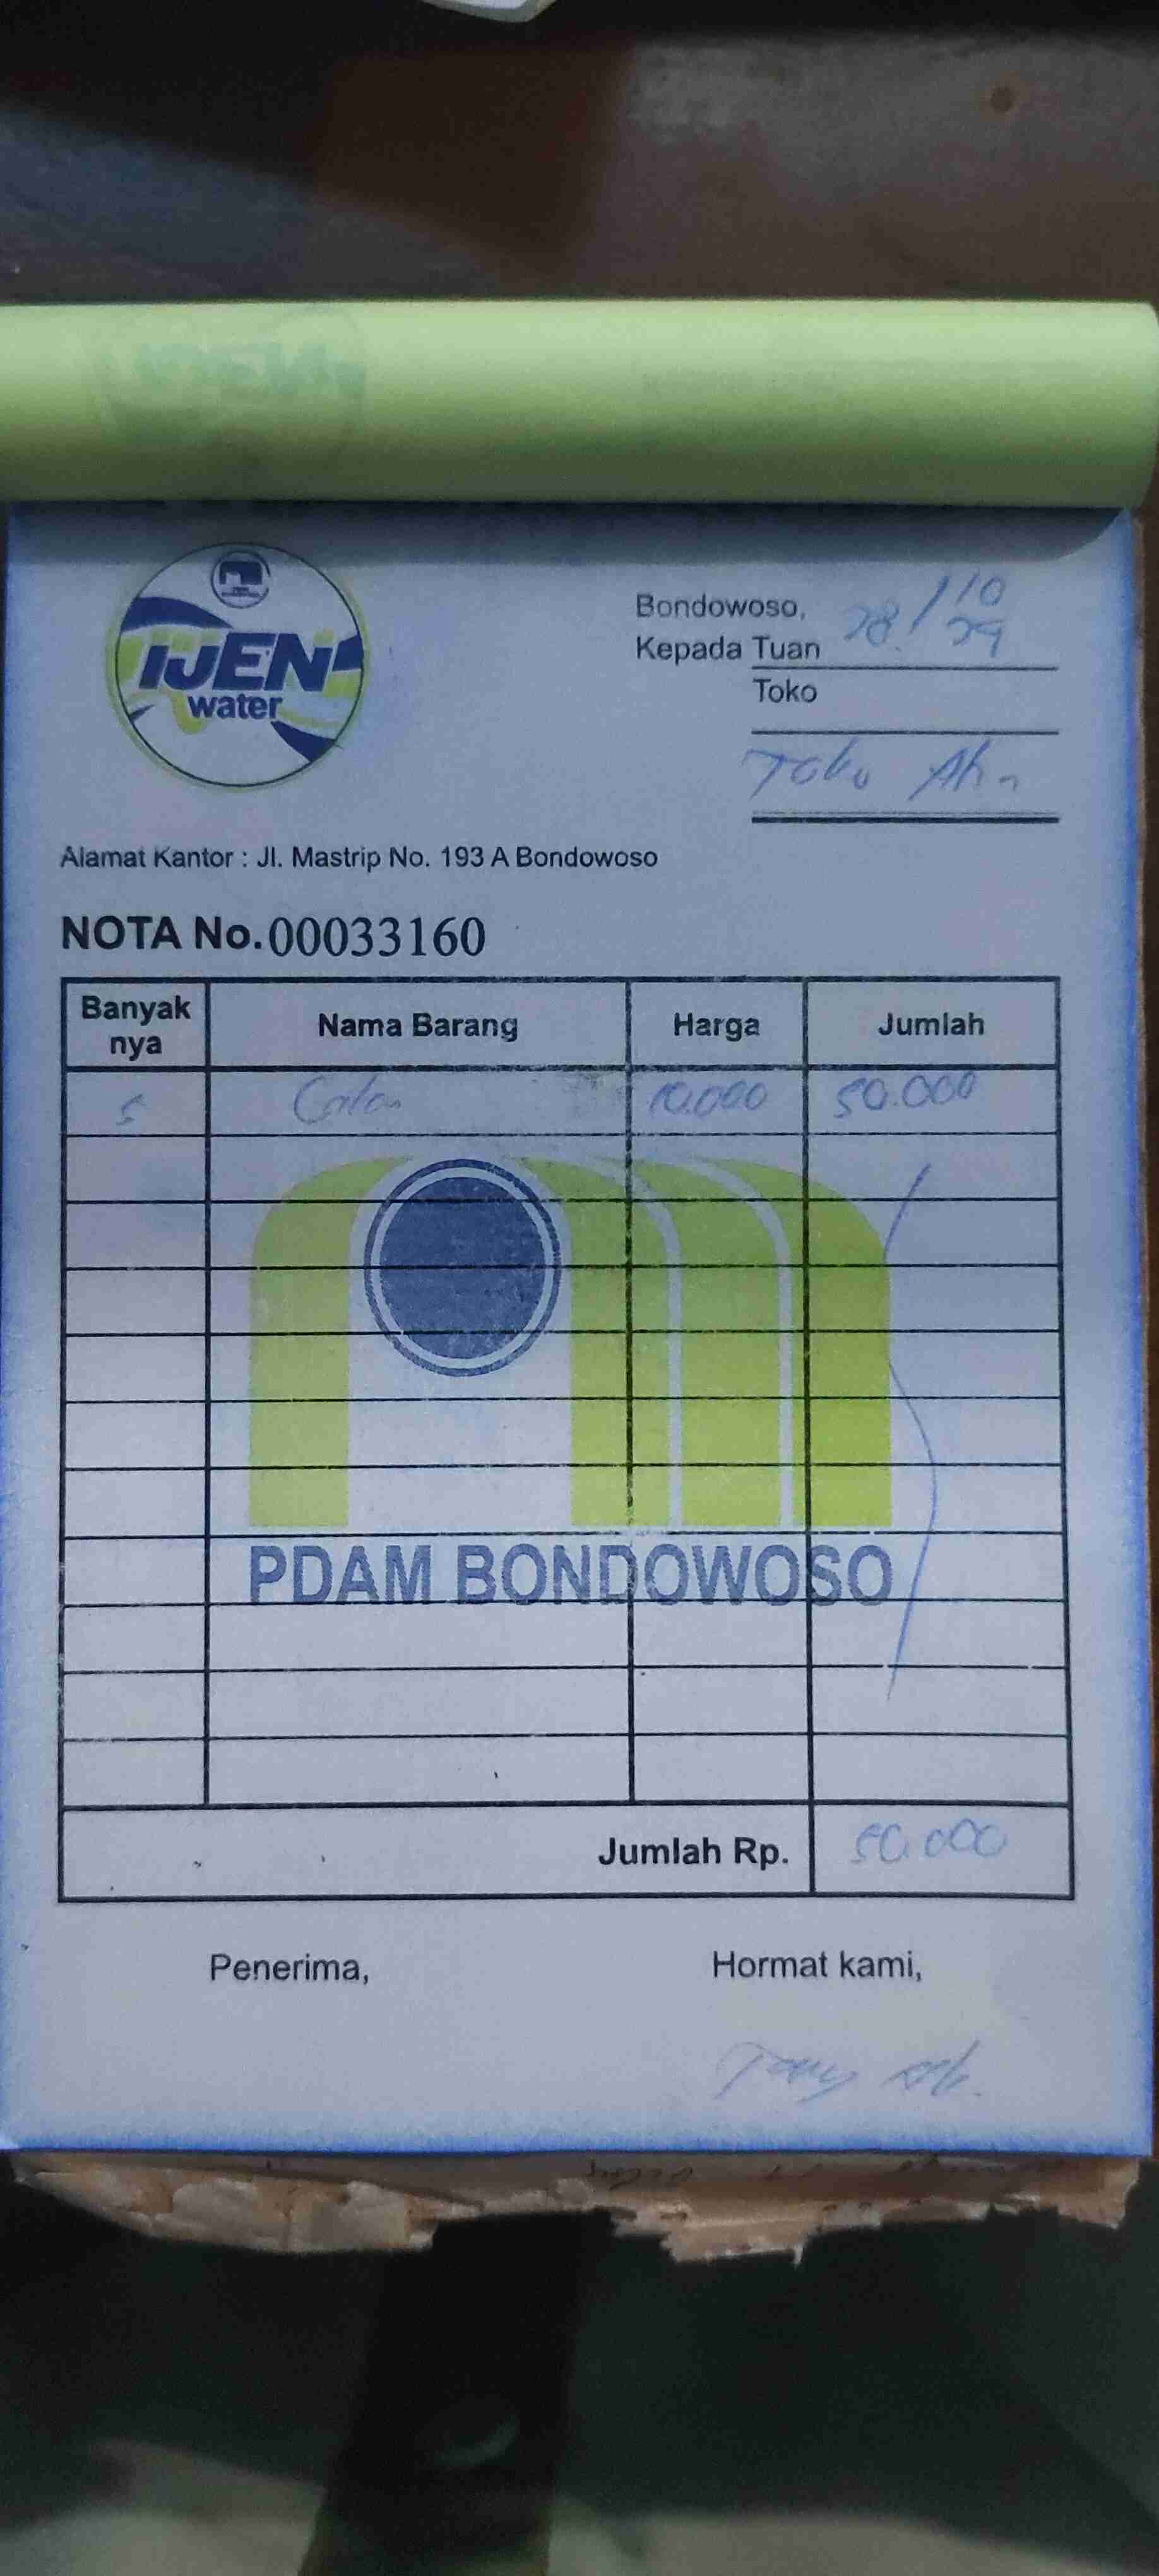 IJEN
water
Bondowoso, 28/10
Kepada Tuan
Toko
Toko
Alamat Kantor : Jl. Mastrip No. 193 A Bondowoso
NOTA No. 00033160
Banyak nya Nama Barang Harga Jumlah
5 10.000 50.000
PDAM BONDOWOSO
Jumlah Rp. 50.000
Penerima, Hormat kami,